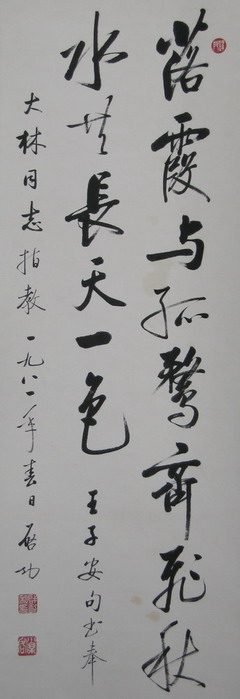 落霞与孤鹜齊飛秋
水共長天一色 王子安句书奉
大林同志指教 一九八一年春日 启功